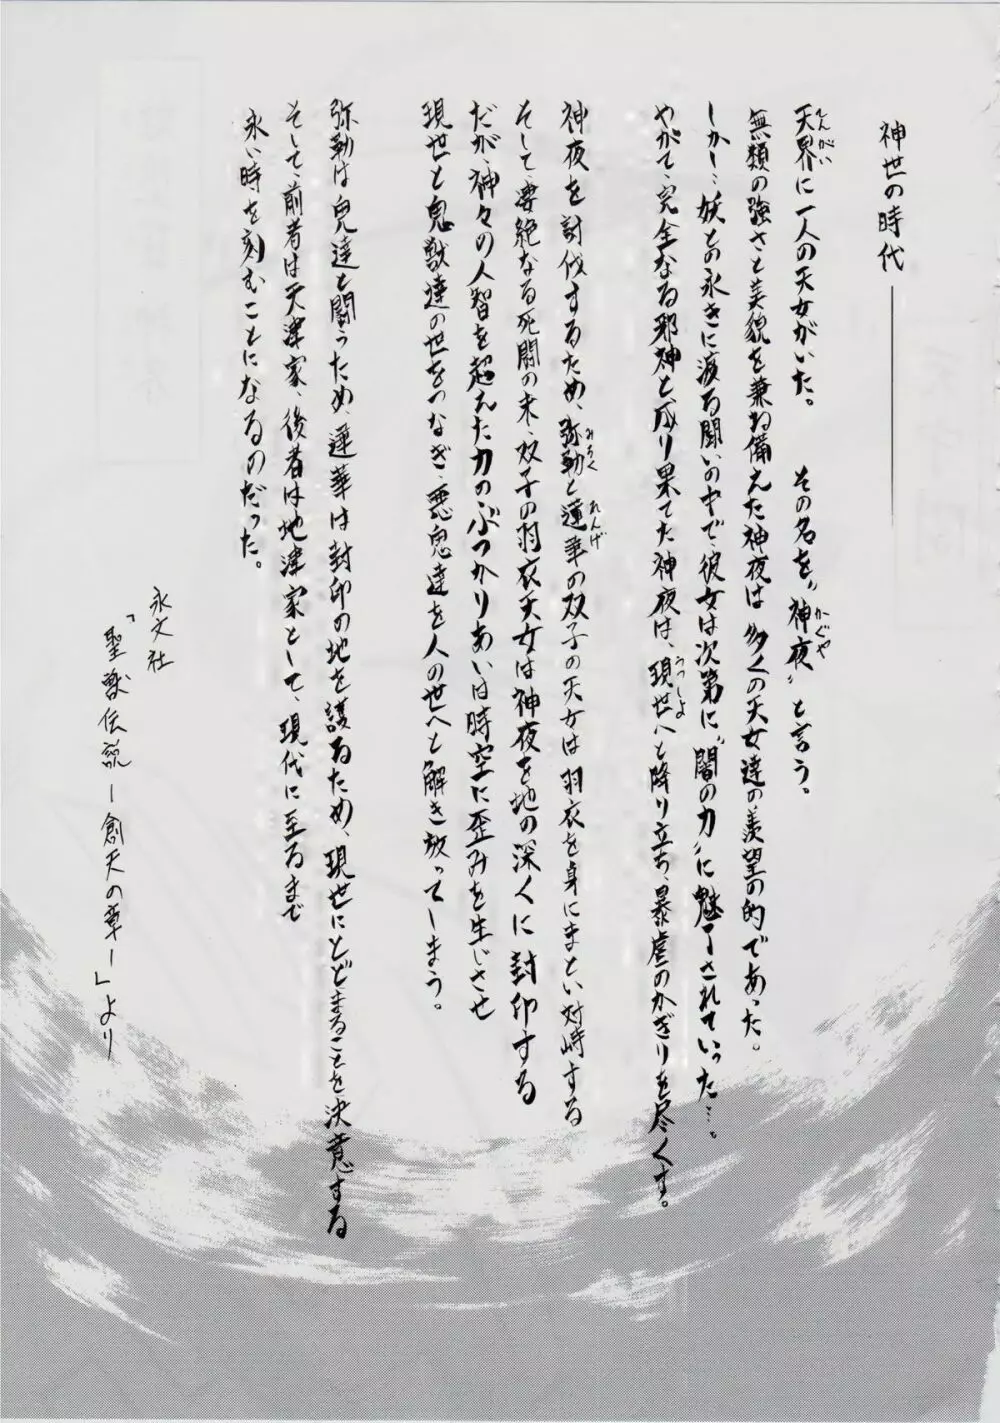 神世の時代――――
天界に一人の天女がいた。 その名を〝神夜〟と言う。
無類の強さと美貌を兼ね備えた神夜は多くの天女達の羨望の的であった。
しかし…妖との永きに渡る闘いの中で、彼女は次第に〝闇の力〟に魅了されていった…。
やがて、完全なる邪神と成り果てた神夜は、現世へと降り立ち、暴虐のかぎりを尽くす。
神夜を討伐するため、弥勒と蓮華の双子の天女は羽衣を身にまとい対峙する
そして、凄絶なる死闘の末、双子の羽衣天女は神夜を地の深くに封印する
だが、神々の人智を超えた力のぶつかりあいは時空に歪みを生じさせ
現世と鬼獣達の世をつなぎ、悪鬼達を人の世へと解き放ってしまう。
弥勒は鬼達と闘うため、蓮華は封印の地を護るため、現世にとどまることを決意する
そして、前者は天津家、後者は地津家として、現代に至るまで
永い時を刻むことになるのだった。
永文社
「聖獣伝説ー創天の章ー」より